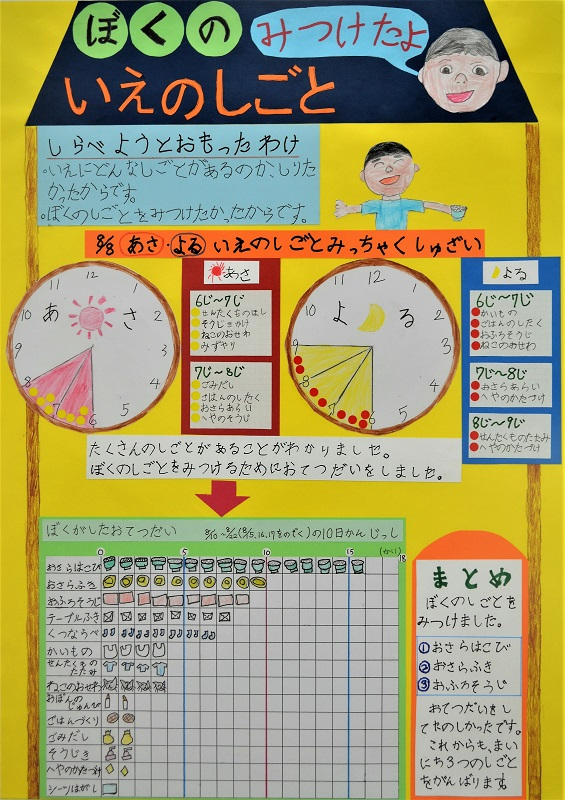 ぼくの
みつけたよ
いえのしごと
しらべようとおもったわけ
・いえにどんなしごとがあるのか、しりた
かったからです。
・ぼくのしごとをみつけたかったからです。
8/8 あさ・よる いえのしごとみっちゃくしゅざい
あさ
12
1
2
3
4
5
6
7
8
9
10
11
あさ
6じ~7じ
せんたくものほし
そうじきかけ
ねこのおせわ
みずやり
7じ~8じ
ごみだし
ごはんのしたく
おさらあらい
へやのそうじ
よる
12
1
2
3
4
5
6
7
8
9
10
11
よる
6じ~7じ
かいもの
ごはんのしたく
おふろそうじ
ねこのおせわ
7じ~8じ
おさらあらい
へやのかたづけ
8じ~9じ
せんたくものたたみ
へやのかたづけ
たくさんのしごとがあることがわかりました。
ぼくのしごとをみつけるためにおてつだいをしました。
ぼくがしたおてつだい 8/10~8/22(8/15,16,17をのぞく)の10日かんじっし
0 5 10 15 18
(かい)
おさらはこび
おさらふき
おふろそうじ
テーブルふき
くつならべ
かいもの
せんたくもの
たたみ
ねこのおせわ
おぼんの
じゅんび
ごはんづくり
ごみだし
そうじき
へやのかたづけ
シーツはがし
まとめ
ぼくのしごとを
みつけました。
①おさらはこび
②おさらふき
③おふろそうじ
おてつだいをし
てたのしかったです。
これからも、まい
にち3つのしごと
をがんばります。